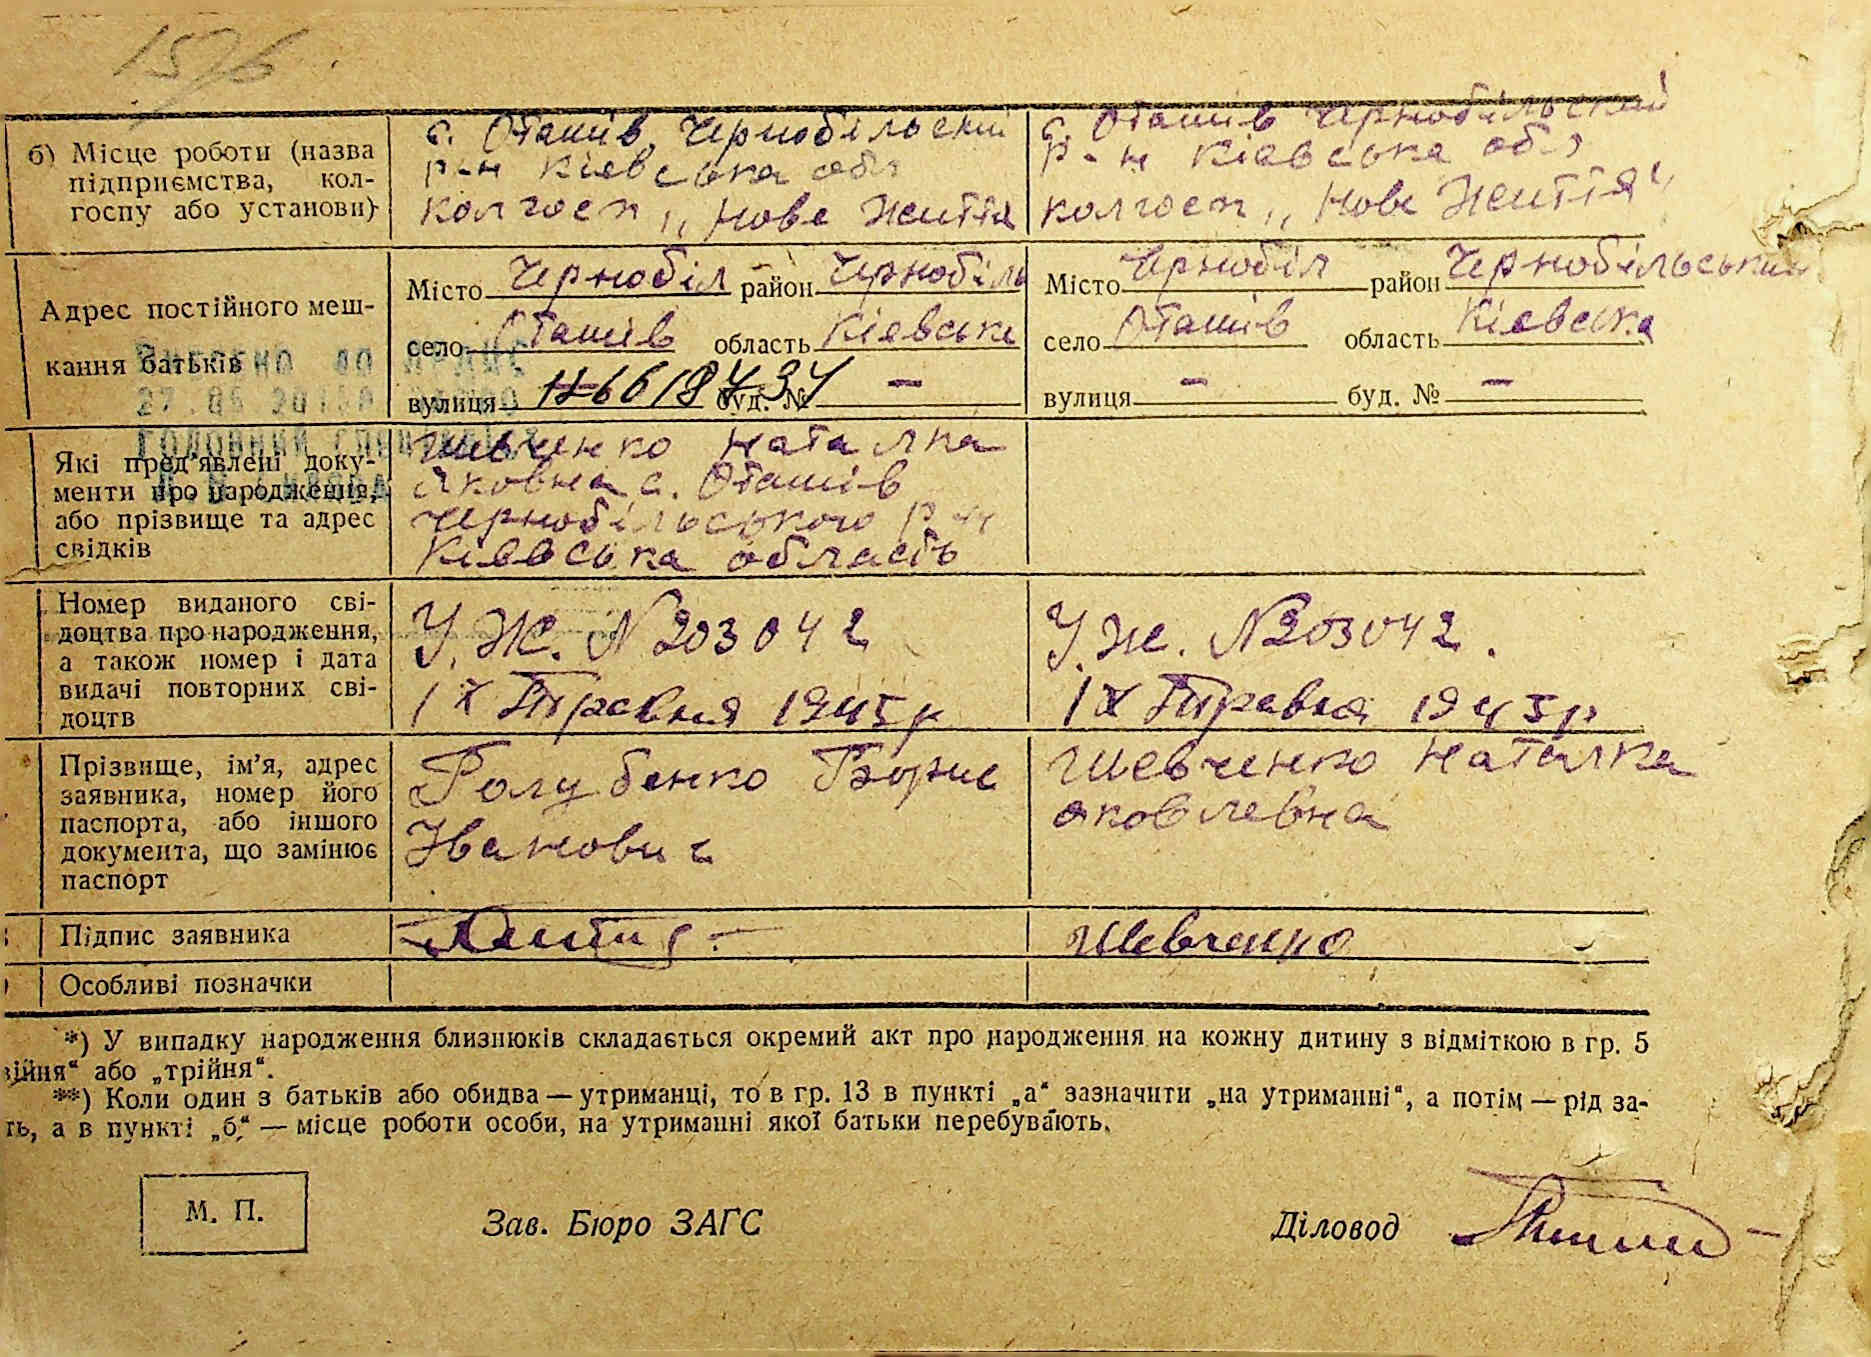 1576
б) Місце роботи (назва
підприємства, кол-
госпу або установи)
с. Оташів, Чернобільский
р-н Кіевська обл
колгосп „ Нове Життя
с. Оташів Чернобільский
р-н Кіевська обл
колгосп „ Нове Життя"
Адрес постійного меш-
кання батьків
Місто Чернобіл район Чернобіль
село Оташів область Кіевська
вулиця — буд. № —
Місто Чернобіл район Чернобільський
село Оташів область Кіевська
вулиця — буд. № —
Внесено до
27.05.20
Головний спеціаліст
Які пред'явлені доку-
менти про народження,
або прізвище та адрес
свідків
Шевченко Наталка
Яковна с. Оташів
Чернобільського р-н
Кіевська область
Номер виданого сві-
доцтва про народження,
а також номер і дата
видачі повторних сві-
доцтв
У.Ж. N 203042
IX Травня 1945р
У.Ж. N 203042.
IX Травня 1945р
Прізвище, ім'я, адрес
заявника, номер його
паспорта, або іншого
документа, що замінює
паспорт
Голубенко Борис
Іванович
Шевченко Наталка
Яковлевна
Підпис заявника
Шевченко
Особливі позначки
*) У випадку народження близнюків складається окремий акт про народження на кожну дитину з відміткою в гр. 5
ійня“ або „трійня“.
**) Коли один з батьків або обидва — утриманці, то в гр. 13 в пункті „а“ зазначити „на утриманні“, а потім — рід за-
ть, а в пункті „б“ — місце роботи особи, на утриманні якої батьки перебувають.
М. П.
Зав. Бюро ЗАГС
Діловод